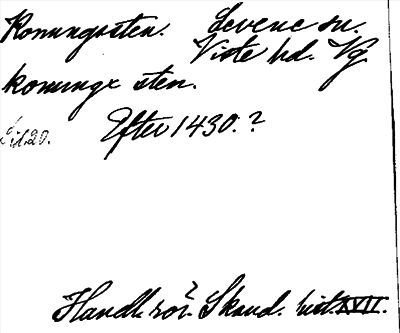 Konungssten. Levene sn.
Viste hd. Vg
konungx sten.
Sid 20. Efter 1430.?
Handl. rör? Skand. hist. XVII.